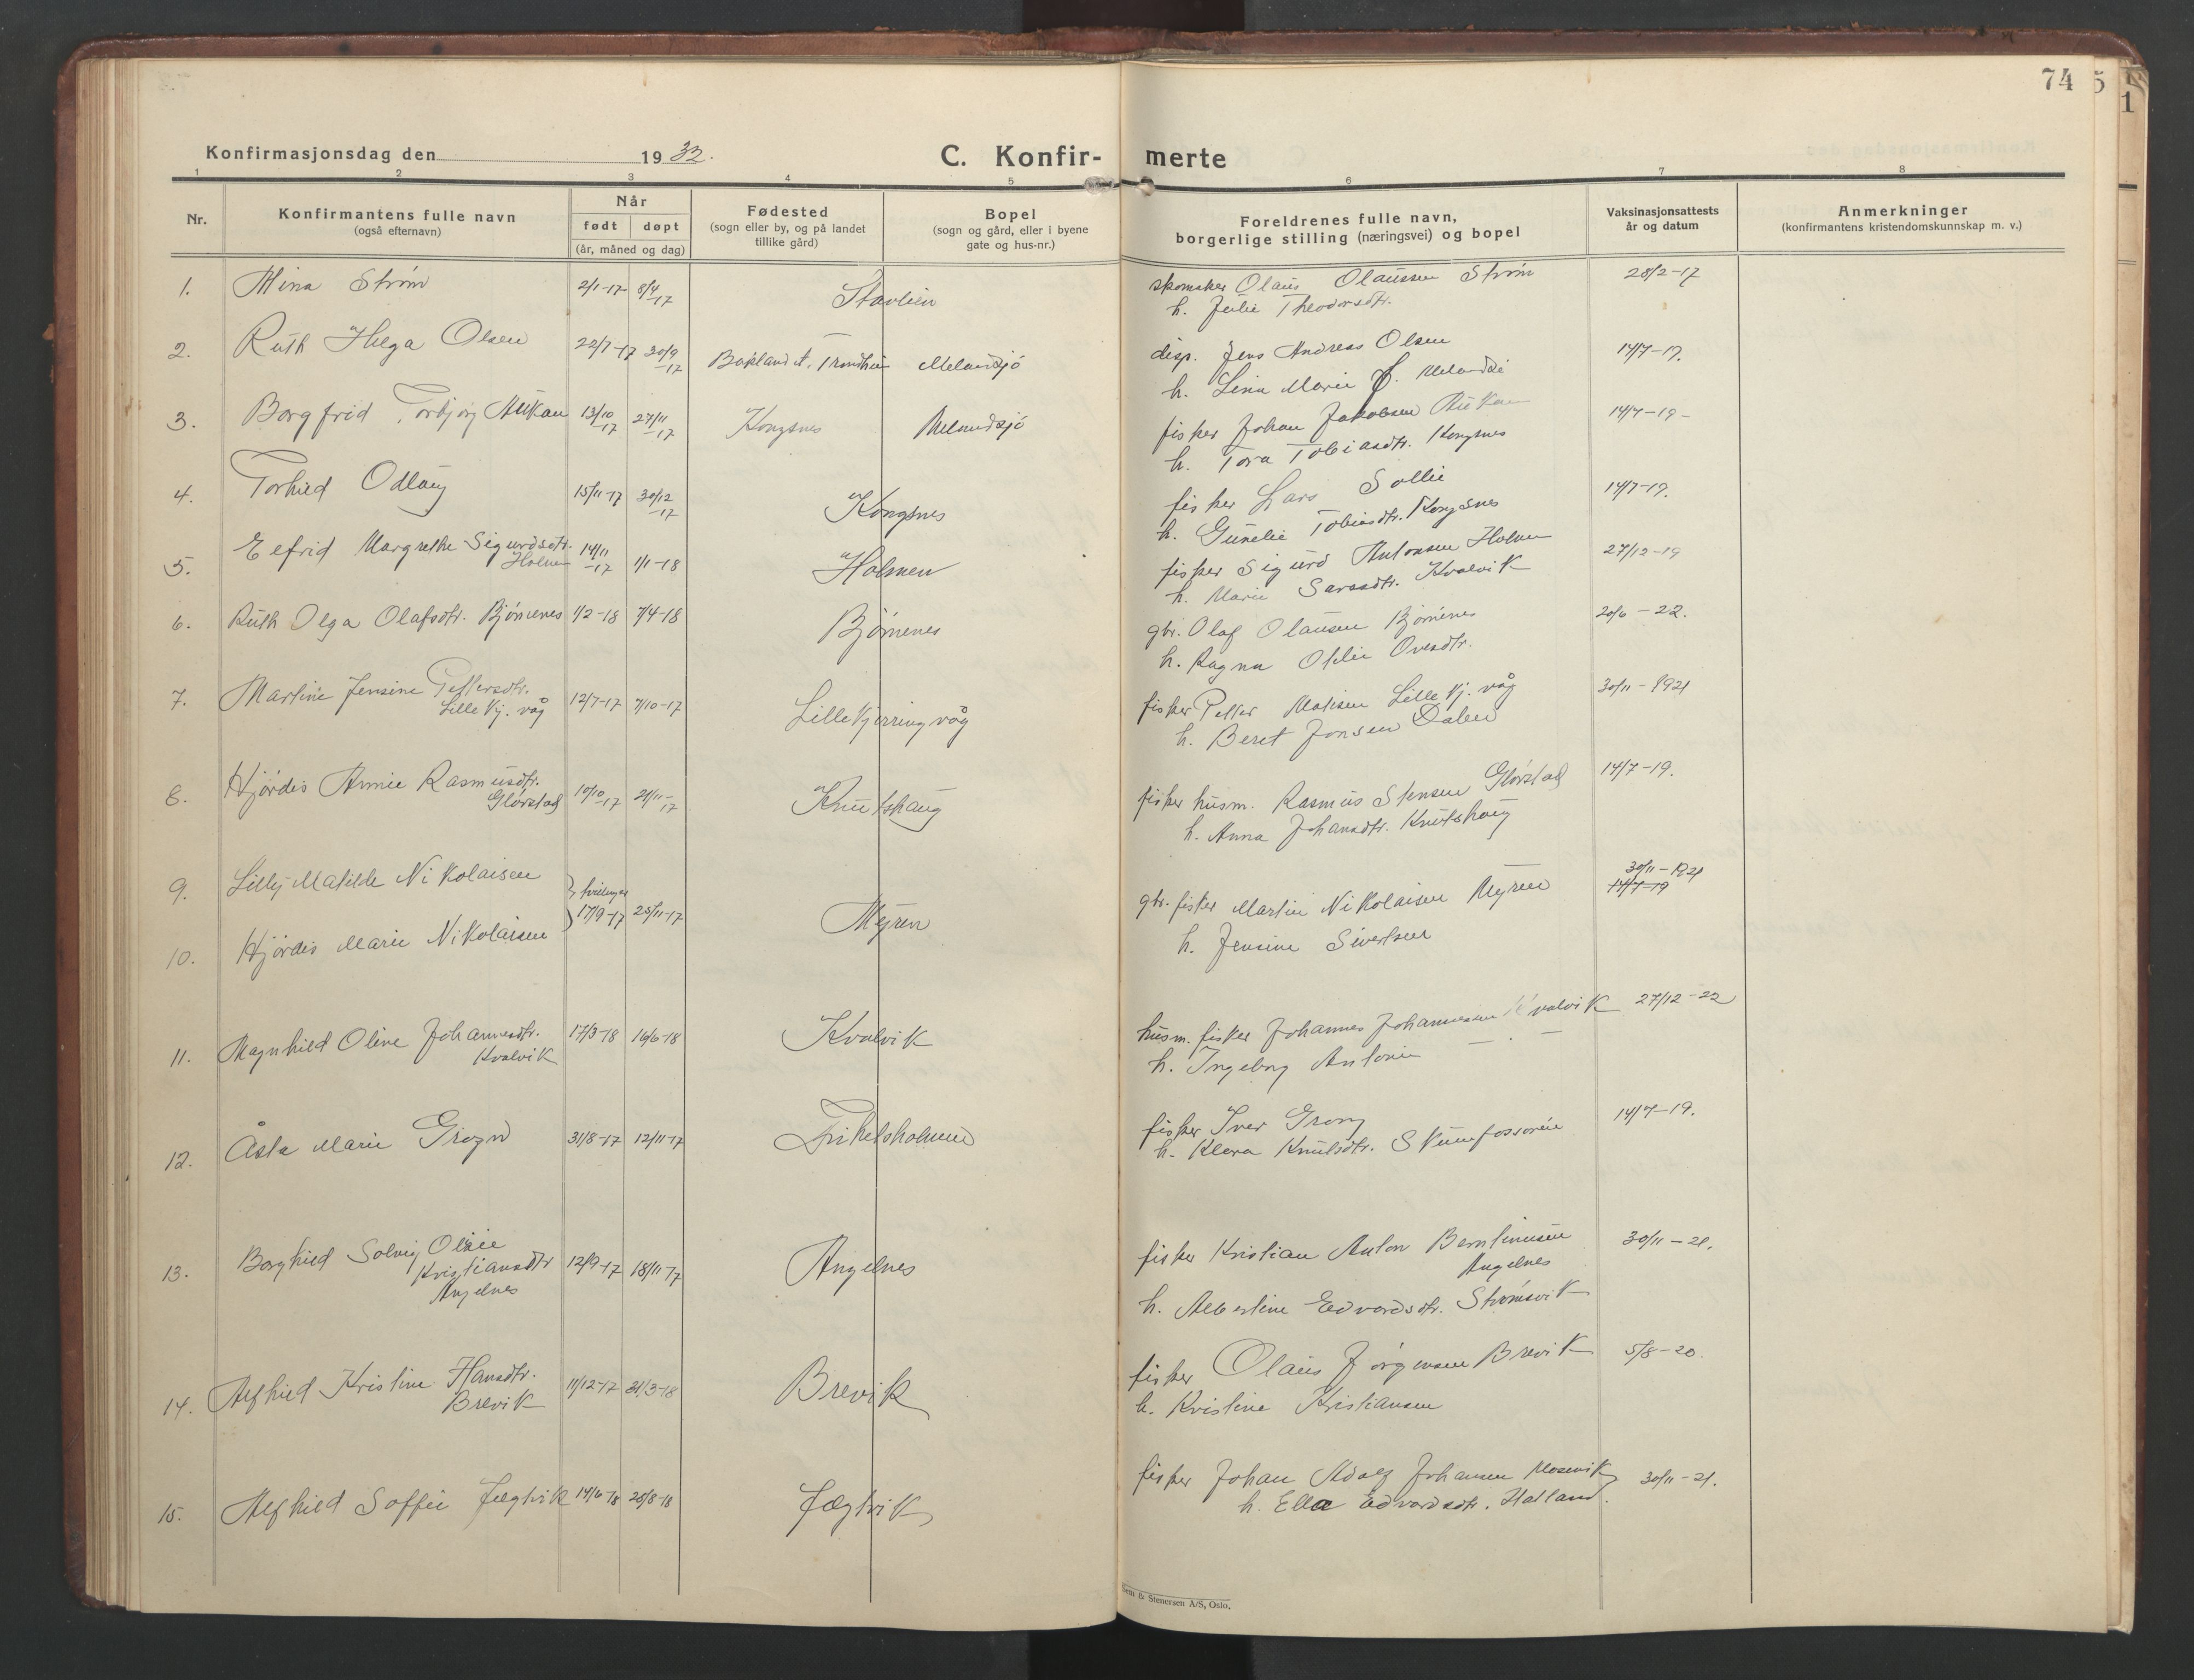 74
5
1
Konfirmasjonsdag den 1932.
C. Konfir-merte
1 2 3 4 5 6 7 8
Nr.
Konfirmantens fulle navn
(også efternavn)
Når
født døpt
(år, måned og dag)
Fødested
(sogn eller by, og på landet
tillike gård)
Bopel
(sogn og gård, eller i byene
gate og hus-nr.)
Foreldrenes fulle navn,
borgerlige stilling (næringsvei) og bopel
Vaksinasjonsattests
år og datum
Anmerkninger
(konfirmantens kristendomskunnskap m. v.)
1. Mina Strøm 2/1-17 8/4-17 Stavlien skomaker Olaus Olaussen Strøm 28/2-17
h. Julie Theodorsdtr.
2. Ruth Helga Olsen 22/7-17 30/9-17 Bakland st. Trondheim Melandsjø disp. Jens Andreas Olsen 14/7-19.
h. Lina Marie J. Melandsø
3. Borgfrid Torbjørg Aukan 13/10-17 27/11-17 Kongsnes Melandsjø fisker Johan Jakobsen Aukan 14/7-19-
h. Tora Tobiasdtr. Kongsnes
4. Torhild Odlaug 15/11-17 30/12-17 Kongsnes fisker Lars Sollie 14/7-19.
h. Gunelie Tobiasdtr. Kongsnes
5. Elfrid Margrethe Sigurdsdtr. 14/11-17 1/1-18 Holmen fisker Sigurd Antonsen Holmen 27/12-19
Holmen h. Marie Sarasdtr. Kvalvik
6. Ruth Olga Olafsdtr. Bjørnenes 1/2-18 7/4-18 Bjørnenes gbr. Olaf Olausen Bjørnenes 20/6-22.
h. Ragna Otelie Ovesdtr.
7. Martine Jensine Pettersdtr. 12/7-17 7/10-17 Lillekjerringvåg fisker Petter Matisen Lillekj.våg 30/11-1921
Lillekj.våg h. Beret Jonsen Dalen
8. Hjørdis Annie Rasmusdtr. 10/10-17 21/11-17 Knutshaug fisker husm. Rasmus Stensen Glørstad 14/7-19.
Glørstad h. Anna Johansdtr. Knutshaug
9. Lilly Matilde Nikolaisen tvilinger 30/11-1921
17/9-17 25/11-17 Myren gbr. fisker Martin Nikolaisen Myren 14/7-19
10. Hjørdis Marie Nikolaisen h. Jensine Sivertsen
11. Magnhild Oline Johannesdtr. 17/3-18 16/6-18 Kvalvik husm. fisker Johannes Johannesen Kvalvik 27/12-22
Kvalvik h. Ingeborg Antonie
12. Åsta Marie 31/8-17 12/11-17 fisker Iver Grong 14/7-19.
h. Klara Knutsdtr.
13. Borghild Solvig Olsie 12/9-17 18/11-17 Angelnes fisker Kristian Anton Berntinusen 30/11-21.
Kristiansdtr Angelnes
Angelnes h. Albertine Edvardsdtr. Strømsvik
14. Alfhild Kristine Hansdtr. 11/12-17 31/3-18 Brevik fisker Olaus Jørgensen Brevik 5/8-20.
Brevik h. Kristine Kristiansen
15. Alfhild Soffie Jægtvik 14/6-18 25/8-18 Jægtvik fisker Johan Adolf Johansen Mosevik 30/11-21.
h. Ella Edvardsdtr. Hatland.
& Stenersen A/S, Oslo.